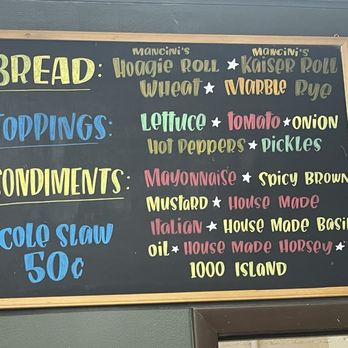 MANCINI'S MANCINI'S
BREAD: HOAGIE ROLL ★ KAISER ROLL
WHEAT ★ MARBLE RYE
TOPPINGS: LETTUCE ★ TOMATO ★ ONION
HOT PEPPERS ★ PICKLES
CONDIMENTS: MAYONNAISE ★ SPICY BROWN
MUSTARD ★ HOUSE MADE
ITALIAN ★ HOUSE MADE BASIL
OIL ★ HOUSE MADE HORSEY ★
1000 ISLAND
COLE SLAW
50¢